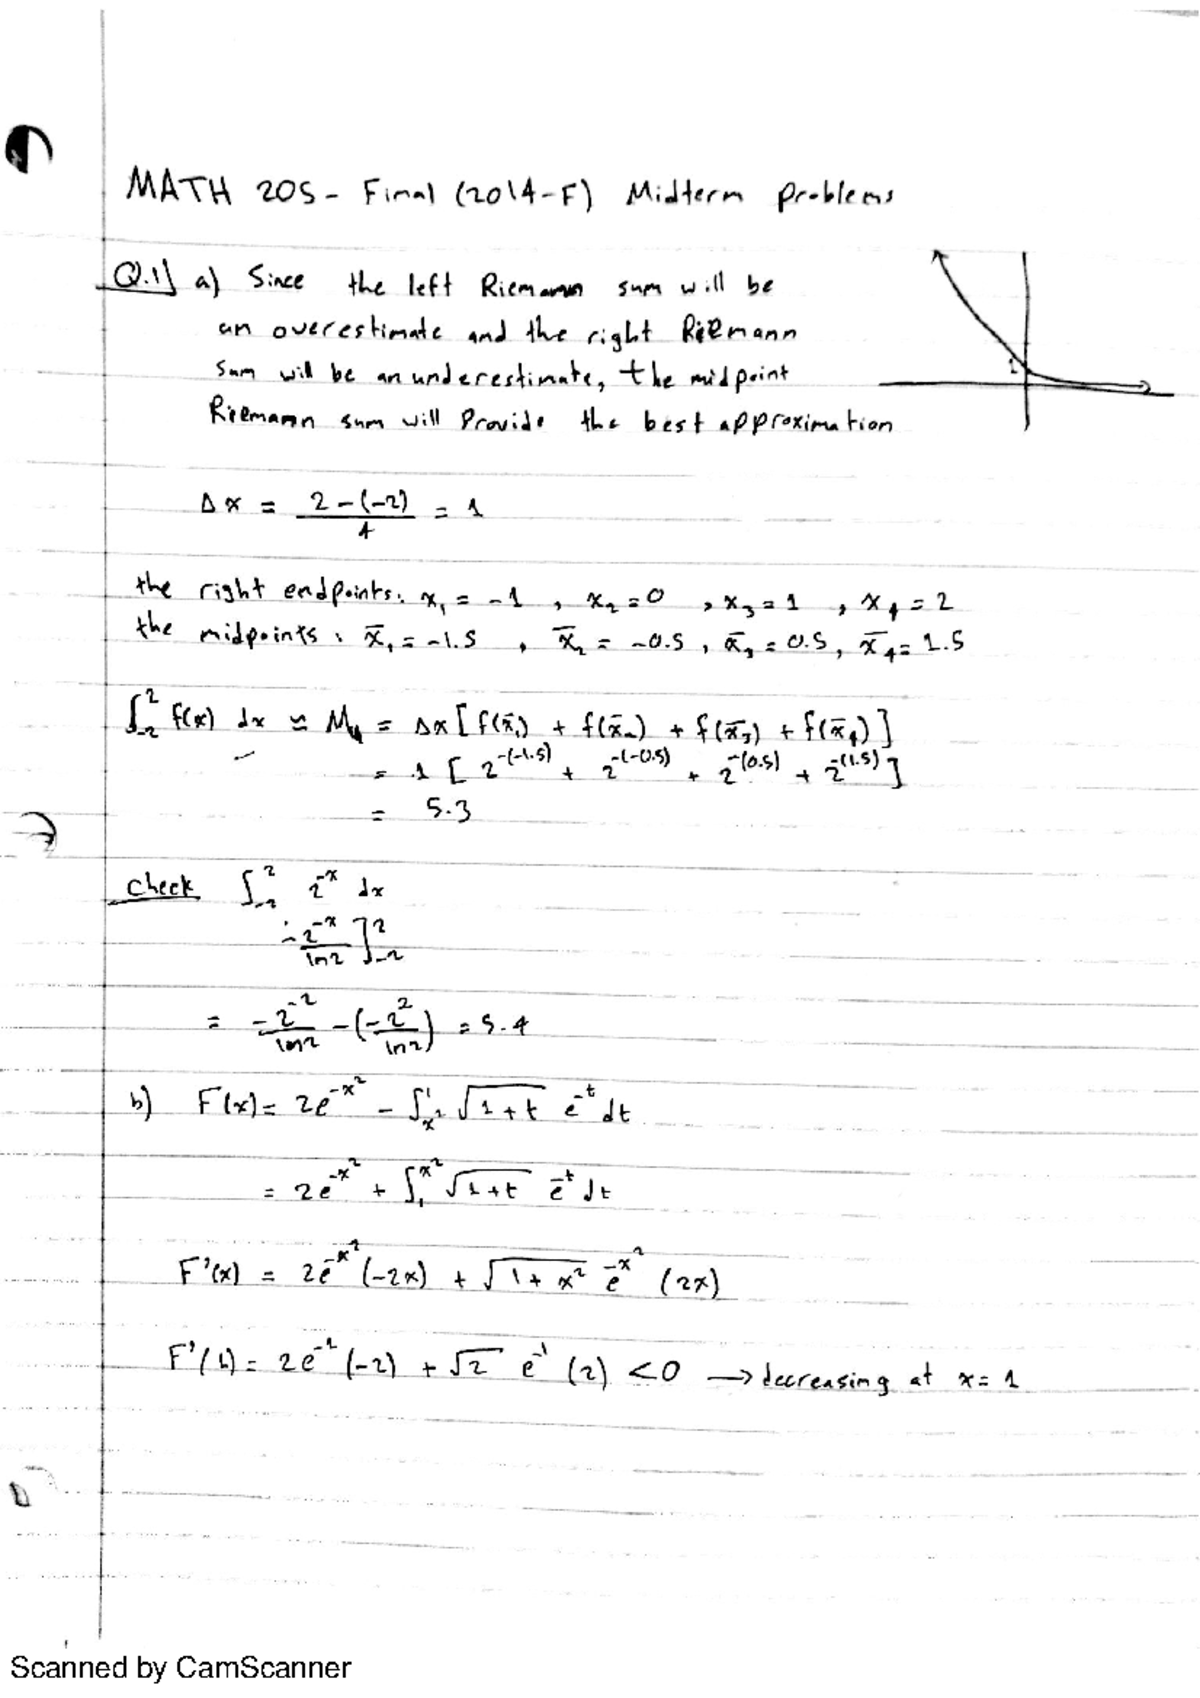 MATH 205 - Final (2014-F) Midterm problems
Q.1] a) Since the left Riemann sum will be
an overestimate and the right Riemann
sum will be an underestimate, the midpoint
Riemann sum will Provide the best approximation
1
Δx = (2-(-2))/4 = 1
the right endpoints: x₁ = -1 , x₂ = 0 , x₃ = 1 , x₄ = 2
the midpoints : x̄₁ = -1.5 , x̄₂ = -0.5 , x̄₃ = 0.5 , x̄₄ = 1.5
∫₋₂² f(x) dx ≈ M₄ = Δx [ f(x̄₁) + f(x̄₂) + f(x̄₃) + f(x̄₄) ]
= 1 [ 2^(-(-1.5)) + 2^(-(-0.5)) + 2^(-(0.5)) + 2^(-(1.5)) ]
= 5.3
check ∫₋₂² 2^(-x) dx
= -2^(-x)/ln2 ]₋₂²
= -2^(-2)/ln2 - (-2^2/ln2) = 5.4
b) F(x) = 2e^(-x²) - ∫_(x²)^1 √(1+t) e^(-t) dt
= 2e^(-x²) + ∫_1^(x²) √(1+t) e^(-t) dt
F'(x) = 2e^(-x²) (-2x) + √(1+x²) e^(-x²) (2x)
F'(1) = 2e^(-1) (-2) + √2 e^(-1) (2) < 0 → decreasing at x = 1
Scanned by CamScanner